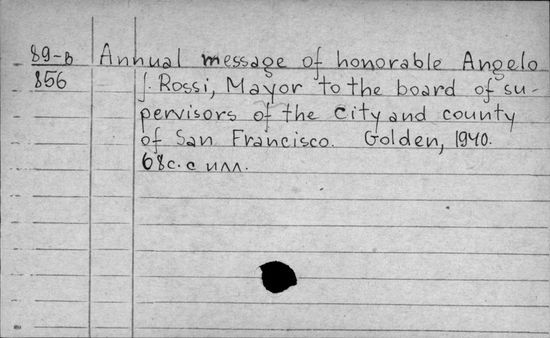 89-в Annual message of honorable Angelo
856 J. Rossi, Mayor to the board of su-
pervisors of the city and county
of San Francisco. Golden, 1940.
68с. с илл.